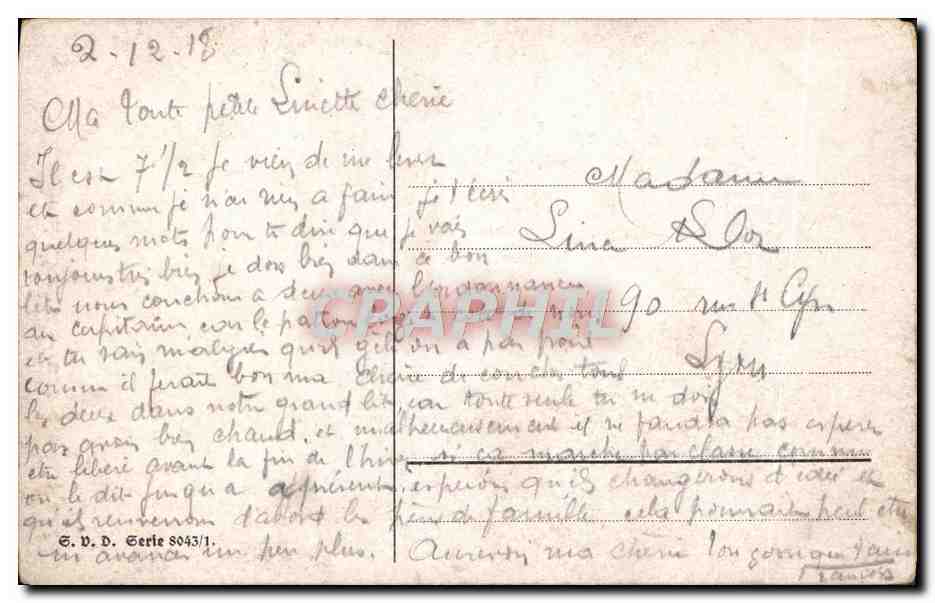 2-12-18
Ma toute petite Linette cherie
Il est 7 1/2 je viens de me lever
et comme je n'ai rien a faire je t'écris
quelques mots pour te dire que je vais
toujours très bien je dors bien dans ce bon
lit nous couchons a deux avec l'ordonnance
du capitaine car le patron
et tu sais malgré qu'il gèle on a pas froid
comme il ferait bon ma cherie de coucher tous
les deux dans notre grand lit car toute seule tu ne dois
pas avoir bien chaud, et malheureusement il ne faudra pas espérer
etre libéré avant la fin de l'hiver si ca marche par classe comme
on le dit jusqu'a apresent, esperons qu'ils changerons d'idée et
qu'ils renverrons d'abord les pères de famille, cela pourrait peut etre
m'avancer un peu plus. Aurevoir ma cherie ton
Francois
Madame
Line
90 rue St Cyr
Lyon
S. V. D. Serie 8043/1.
CPAPHIL